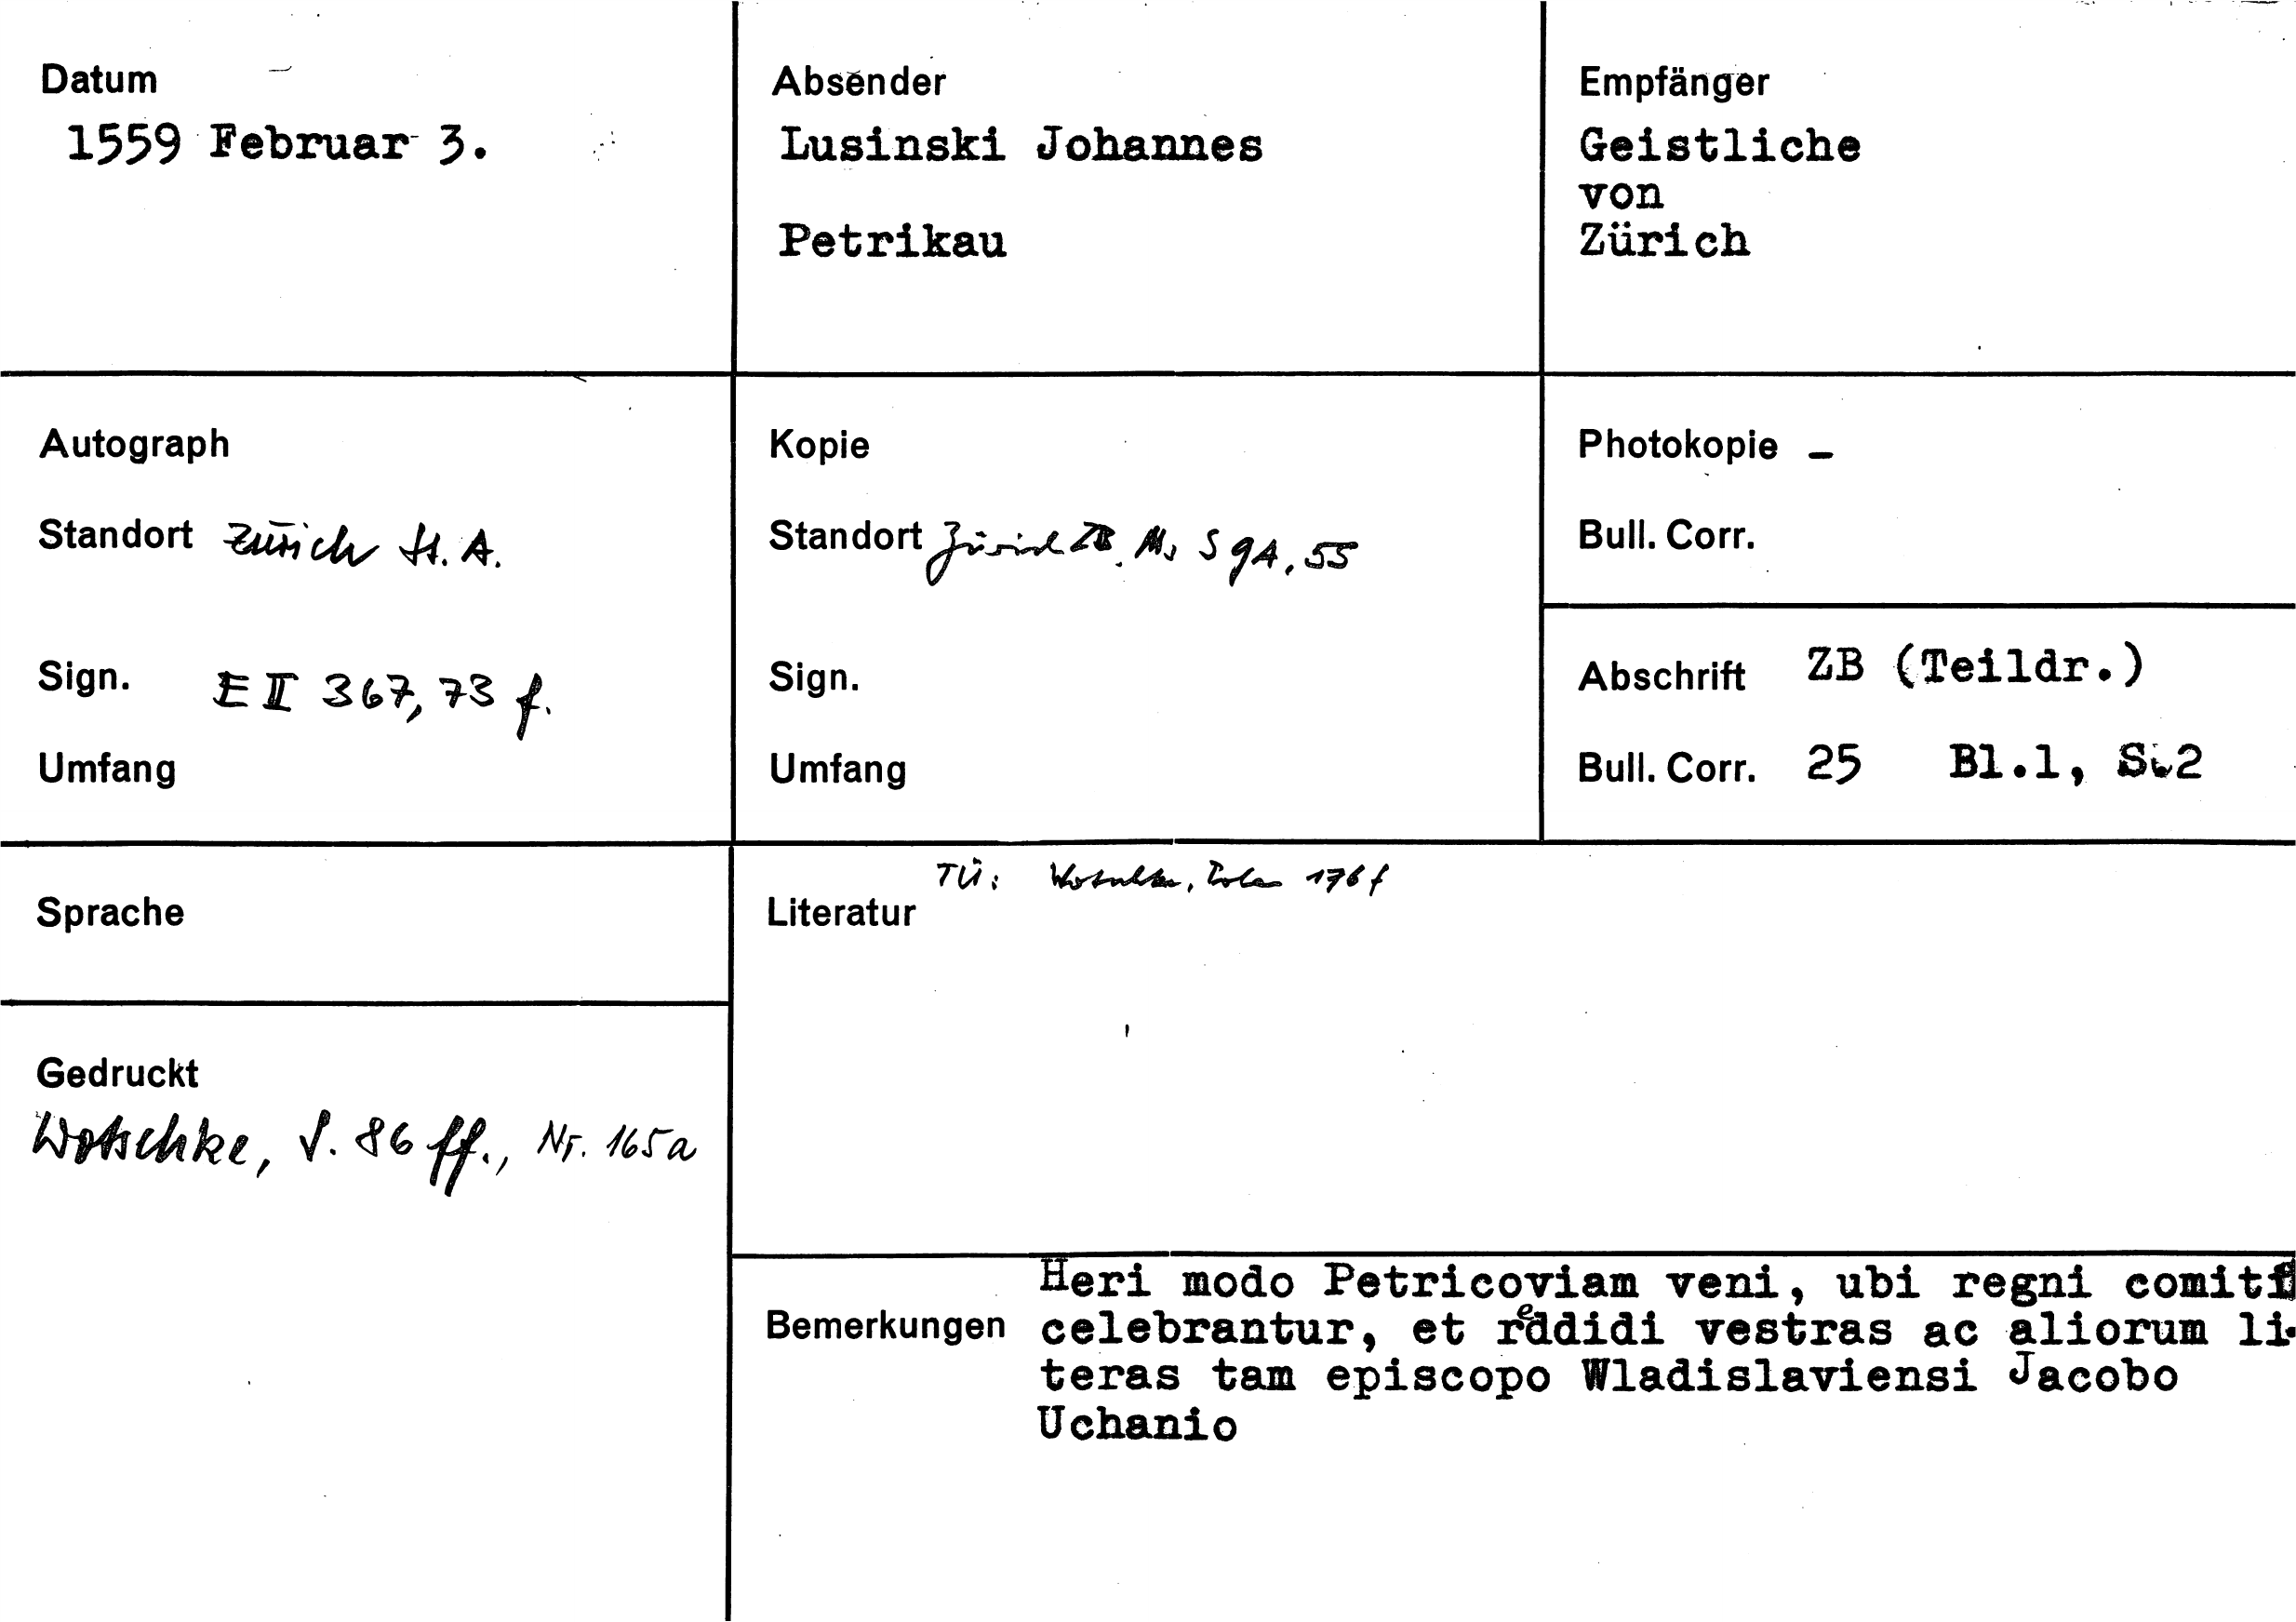 Datum
1559 Februar 3.
Absender
Lusinski Johannes
Petrikau
Empfänger
Geistliche
von
Zürich
Autograph
Standort Zürich St. A.
Sign. E II 367, 73 f.
Umfang
Kopie
Standort Zürich ZB. Ms S
Sign.
Umfang
Photokopie –
Bull. Corr.
Abschrift ZB (Teildr.)
Bull. Corr. 25 Bl.1, S.2
Sprache
Gedruckt
Wotschke, S. 86 ff., Nr. 165a
TÜ: Wotschke, Polen 176 f
Literatur
Bemerkungen
Heri modo Petricoviam veni, ubi regni
celebrantur, et reddidi vestras ac aliorum li-
teras tam episcopo Wladislaviensi Jacobo
Uchanio